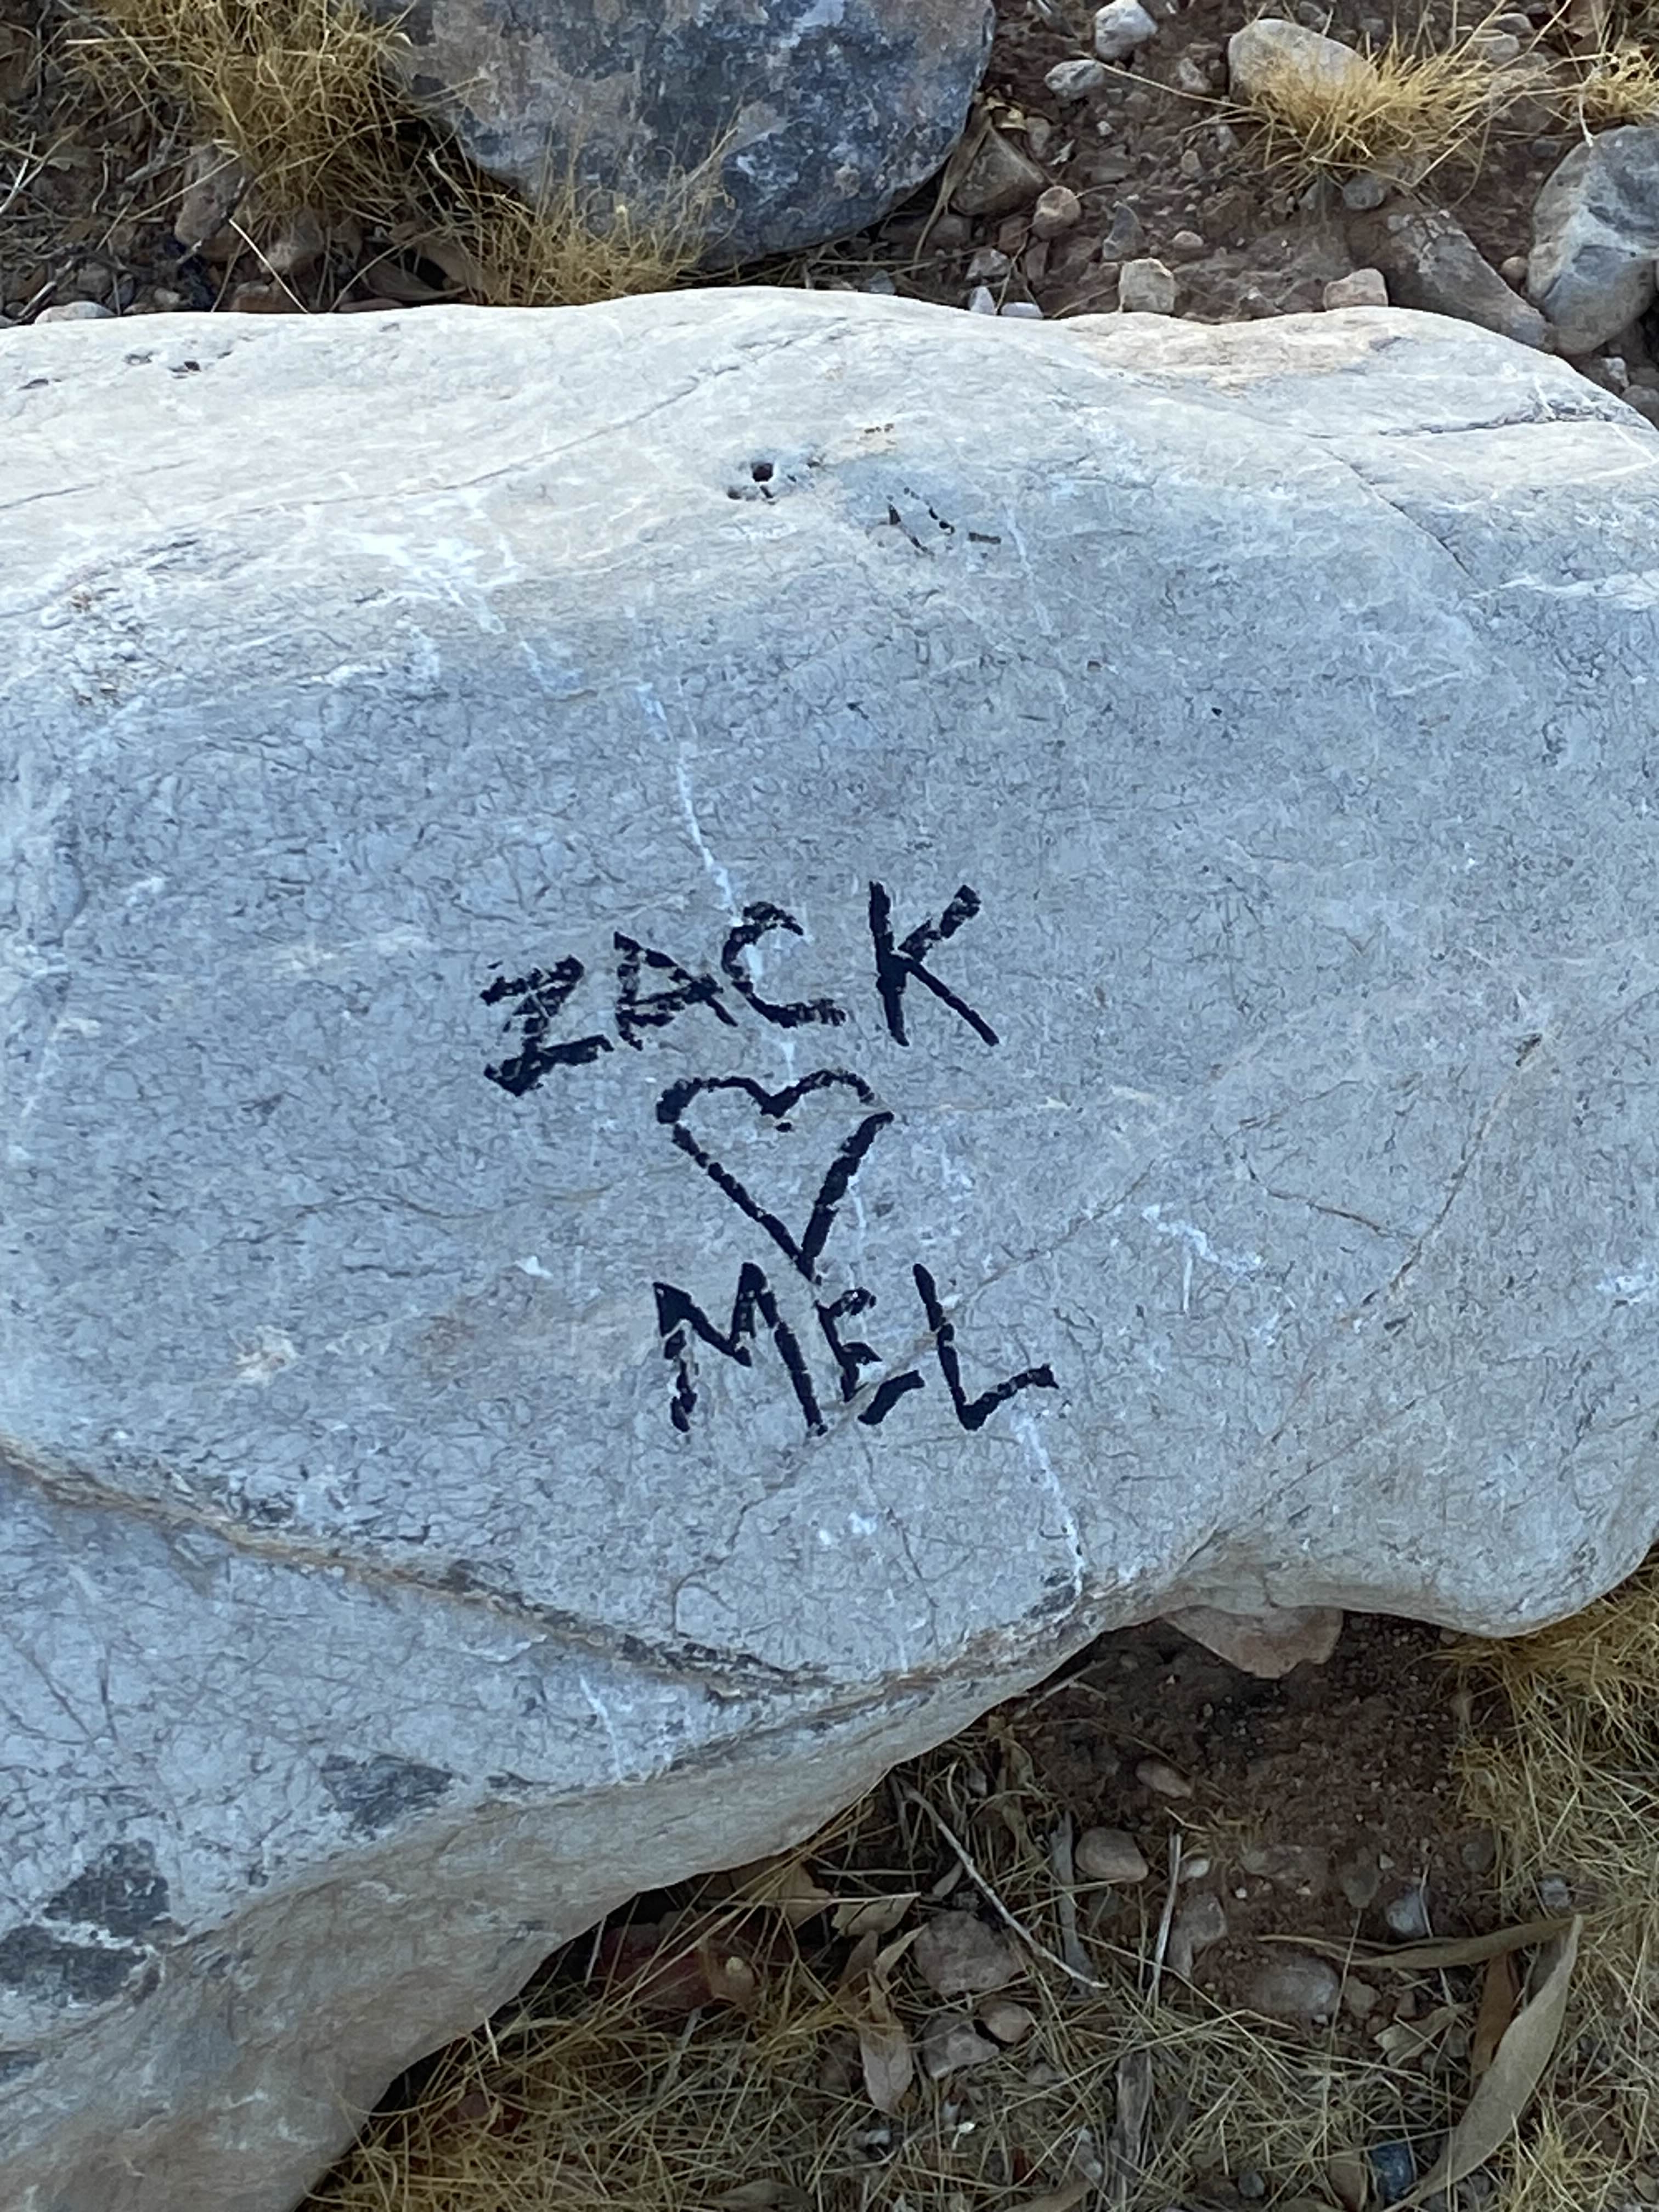 ZACK
♡
MEL